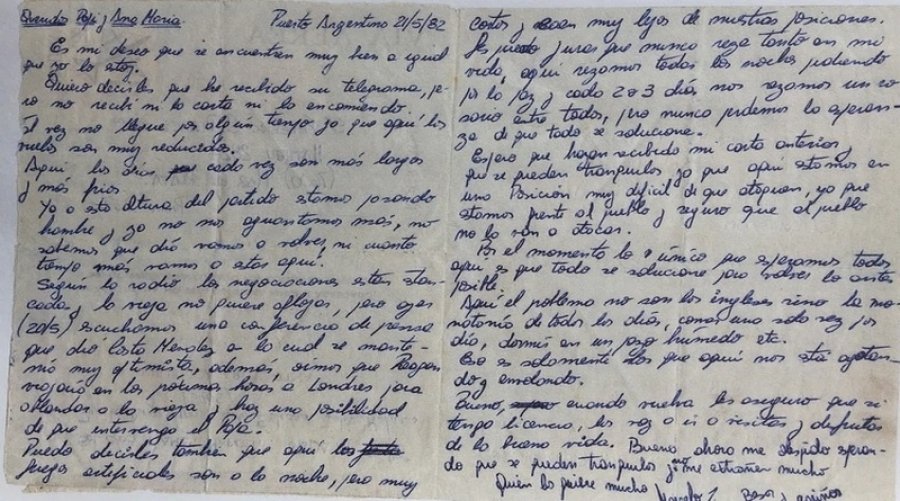 Querido Papi y Ana María. Puerto Argentino 21/5/82
Es mi deseo que se encuentren muy bien a igual
que yo lo estoy.
Quiero decirles que he recibido su telegrama, pe-
ro no recibí ni la carta ni la encomienda.
tal vez no llegue por algún tiempo ya que aquí los
vuelos son muy reducidos.
Aquí los días cada vez son más largos
y más fríos
Yo a esta altura del partido estamos pasando
hambre y ya no nos aguantamos más, no
sabemos que día vamos a volver, ni cuanto
tiempo más vamos a estar aquí.
Según la radio las negociaciones están estan-
cadas, la vieja no quiere aflojar, pero ayer
(20/5) escuchamos una conferencia de prensa
que dió Costa Mendez a la cual se mantu-
vo muy optimista, además, oímos que Reagan
viajaría en las próximas horas a Londres para
ablandar a la vieja y hay una posibilidad
de que intervenga el Papa.
Puedo decirles también que aquí los
fuegos artificiales son a la noche, pero muy
cortos y caen muy lejos de nuestras posiciones.
Les puedo jurar que nunca recé tanto en mi
vida, aquí rezamos todas las noches pidiendo
por la paz y cada 2 o 3 días nos rezamos un ro
sario entre todos, pero nunca perdemos la esperan-
za de que todo se solucione.
Espero que hayan recibido mi carta anterior y
que se queden tranquilos, ya que aquí estamos en
una Posición muy difícil de que ataquen, ya que
estamos frente al pueblo y seguro que al pueblo
no lo van a atacar.
Por el momento lo único que esperamos todos
aquí es que todo se solucione para volver lo antes
posible.
Aquí el problema no son los ingleses sino la mo-
notonía de todos los días, comer una sola vez por
día, dormir en un pozo húmedo etc.
Eso es solamente lo que aquí nos está agotan-
do y enrolando.
Bueno, cuando vuelva les aseguro que si
tengo licencia, los voy a ir a visitar y disfrutar
de la buena vida. Bueno, ahora me despido esperan-
do que se queden tranquilos y no me extrañen mucho
Quien los quiere mucho Besos y cariños